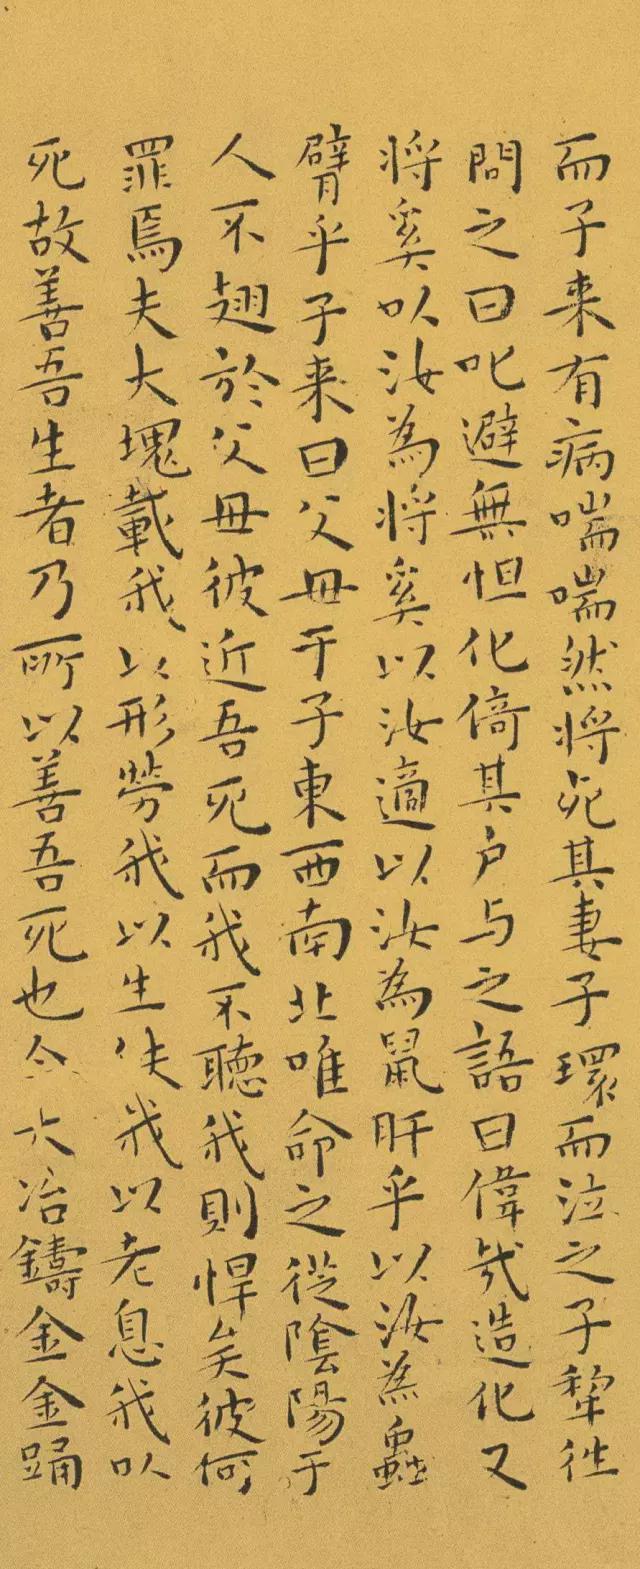 而子来有病喘喘然将死其妻子環而泣之子犂往
問之曰叱避無怛化倚其户与之語曰偉哉造化又
将奚以汝為将奚以汝適以汝為鼠肝乎以汝為蟲
臂乎子来曰父母于子東西南北唯命之從陰陽于
人不翅於父母彼近吾死而我不聽我則悍矣彼何
罪焉夫大塊載我以形勞我以生佚我以老息我以
死故善吾生者乃所以善吾死也今大冶鑄金金踊